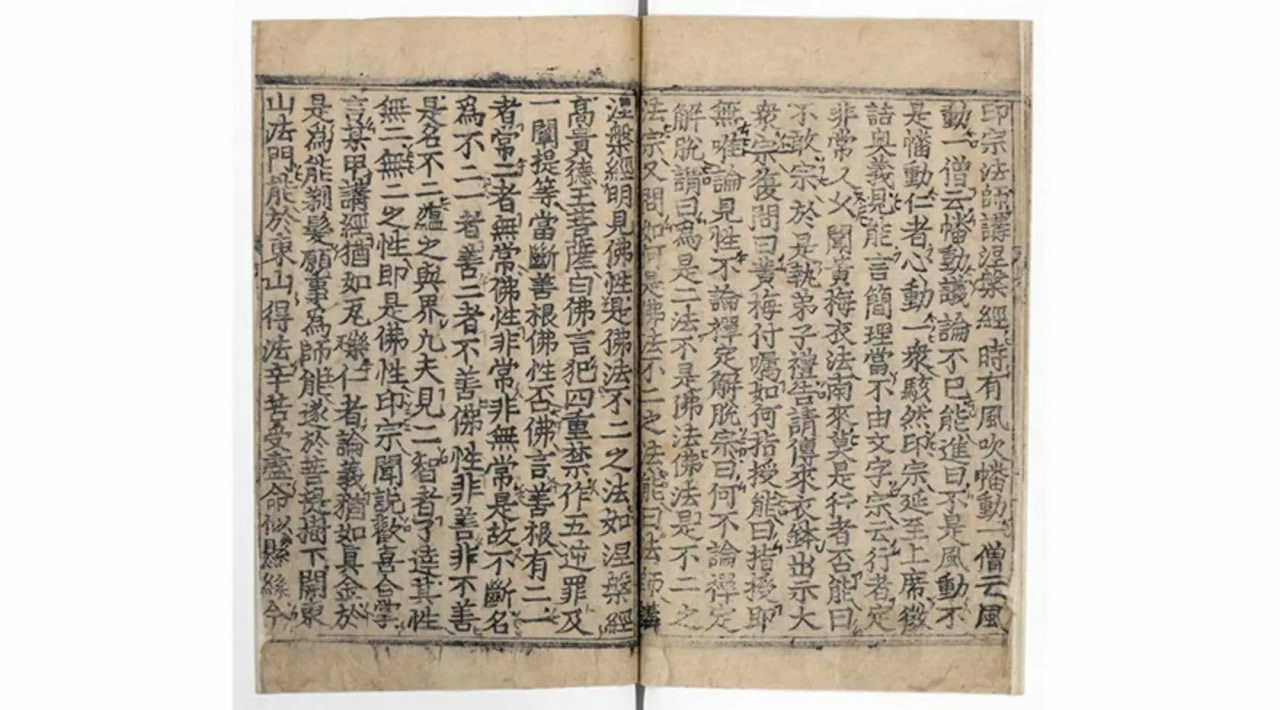 印宗法師講涅槃經時有風吹幡動一僧云風
動一僧云幡動議論不已能進曰不是風動不
是幡動仁者心動一衆駭然印宗延至上席徵
詰奥義見能言簡理當不由文字宗云行者定
非常人久聞黃梅衣法南來莫是行者否能曰
不敢宗於是執弟子禮告請傳來衣鉢出示大
衆宗復問曰黃梅付囑如何指授能曰指授即
無唯論見性不論禪定解脫宗曰何不論禪定
解脫謂曰爲是二法不是佛法佛法是不二之
法宗又問如何是佛法不二之法能曰法師講
涅槃經明見佛性是佛法不二之法如涅槃經
高貴德王菩薩曰佛言犯四重禁作五逆罪及
一闡提等當斷善根佛性否佛言善根有二一
者常二者無常佛性非常非無常是故不斷名
爲不二一者善二者不善佛性非善非不善
是名不二蘊之與界凡夫見二智者了達其性
無二無二之性即是佛性印宗聞說歡喜合掌
言某甲講經猶如瓦礫仁者論義猶如真金於
是爲能剃髮願事爲師能遂於菩提樹下開東
山法門能於東山得法辛苦受盡命似懸絲今